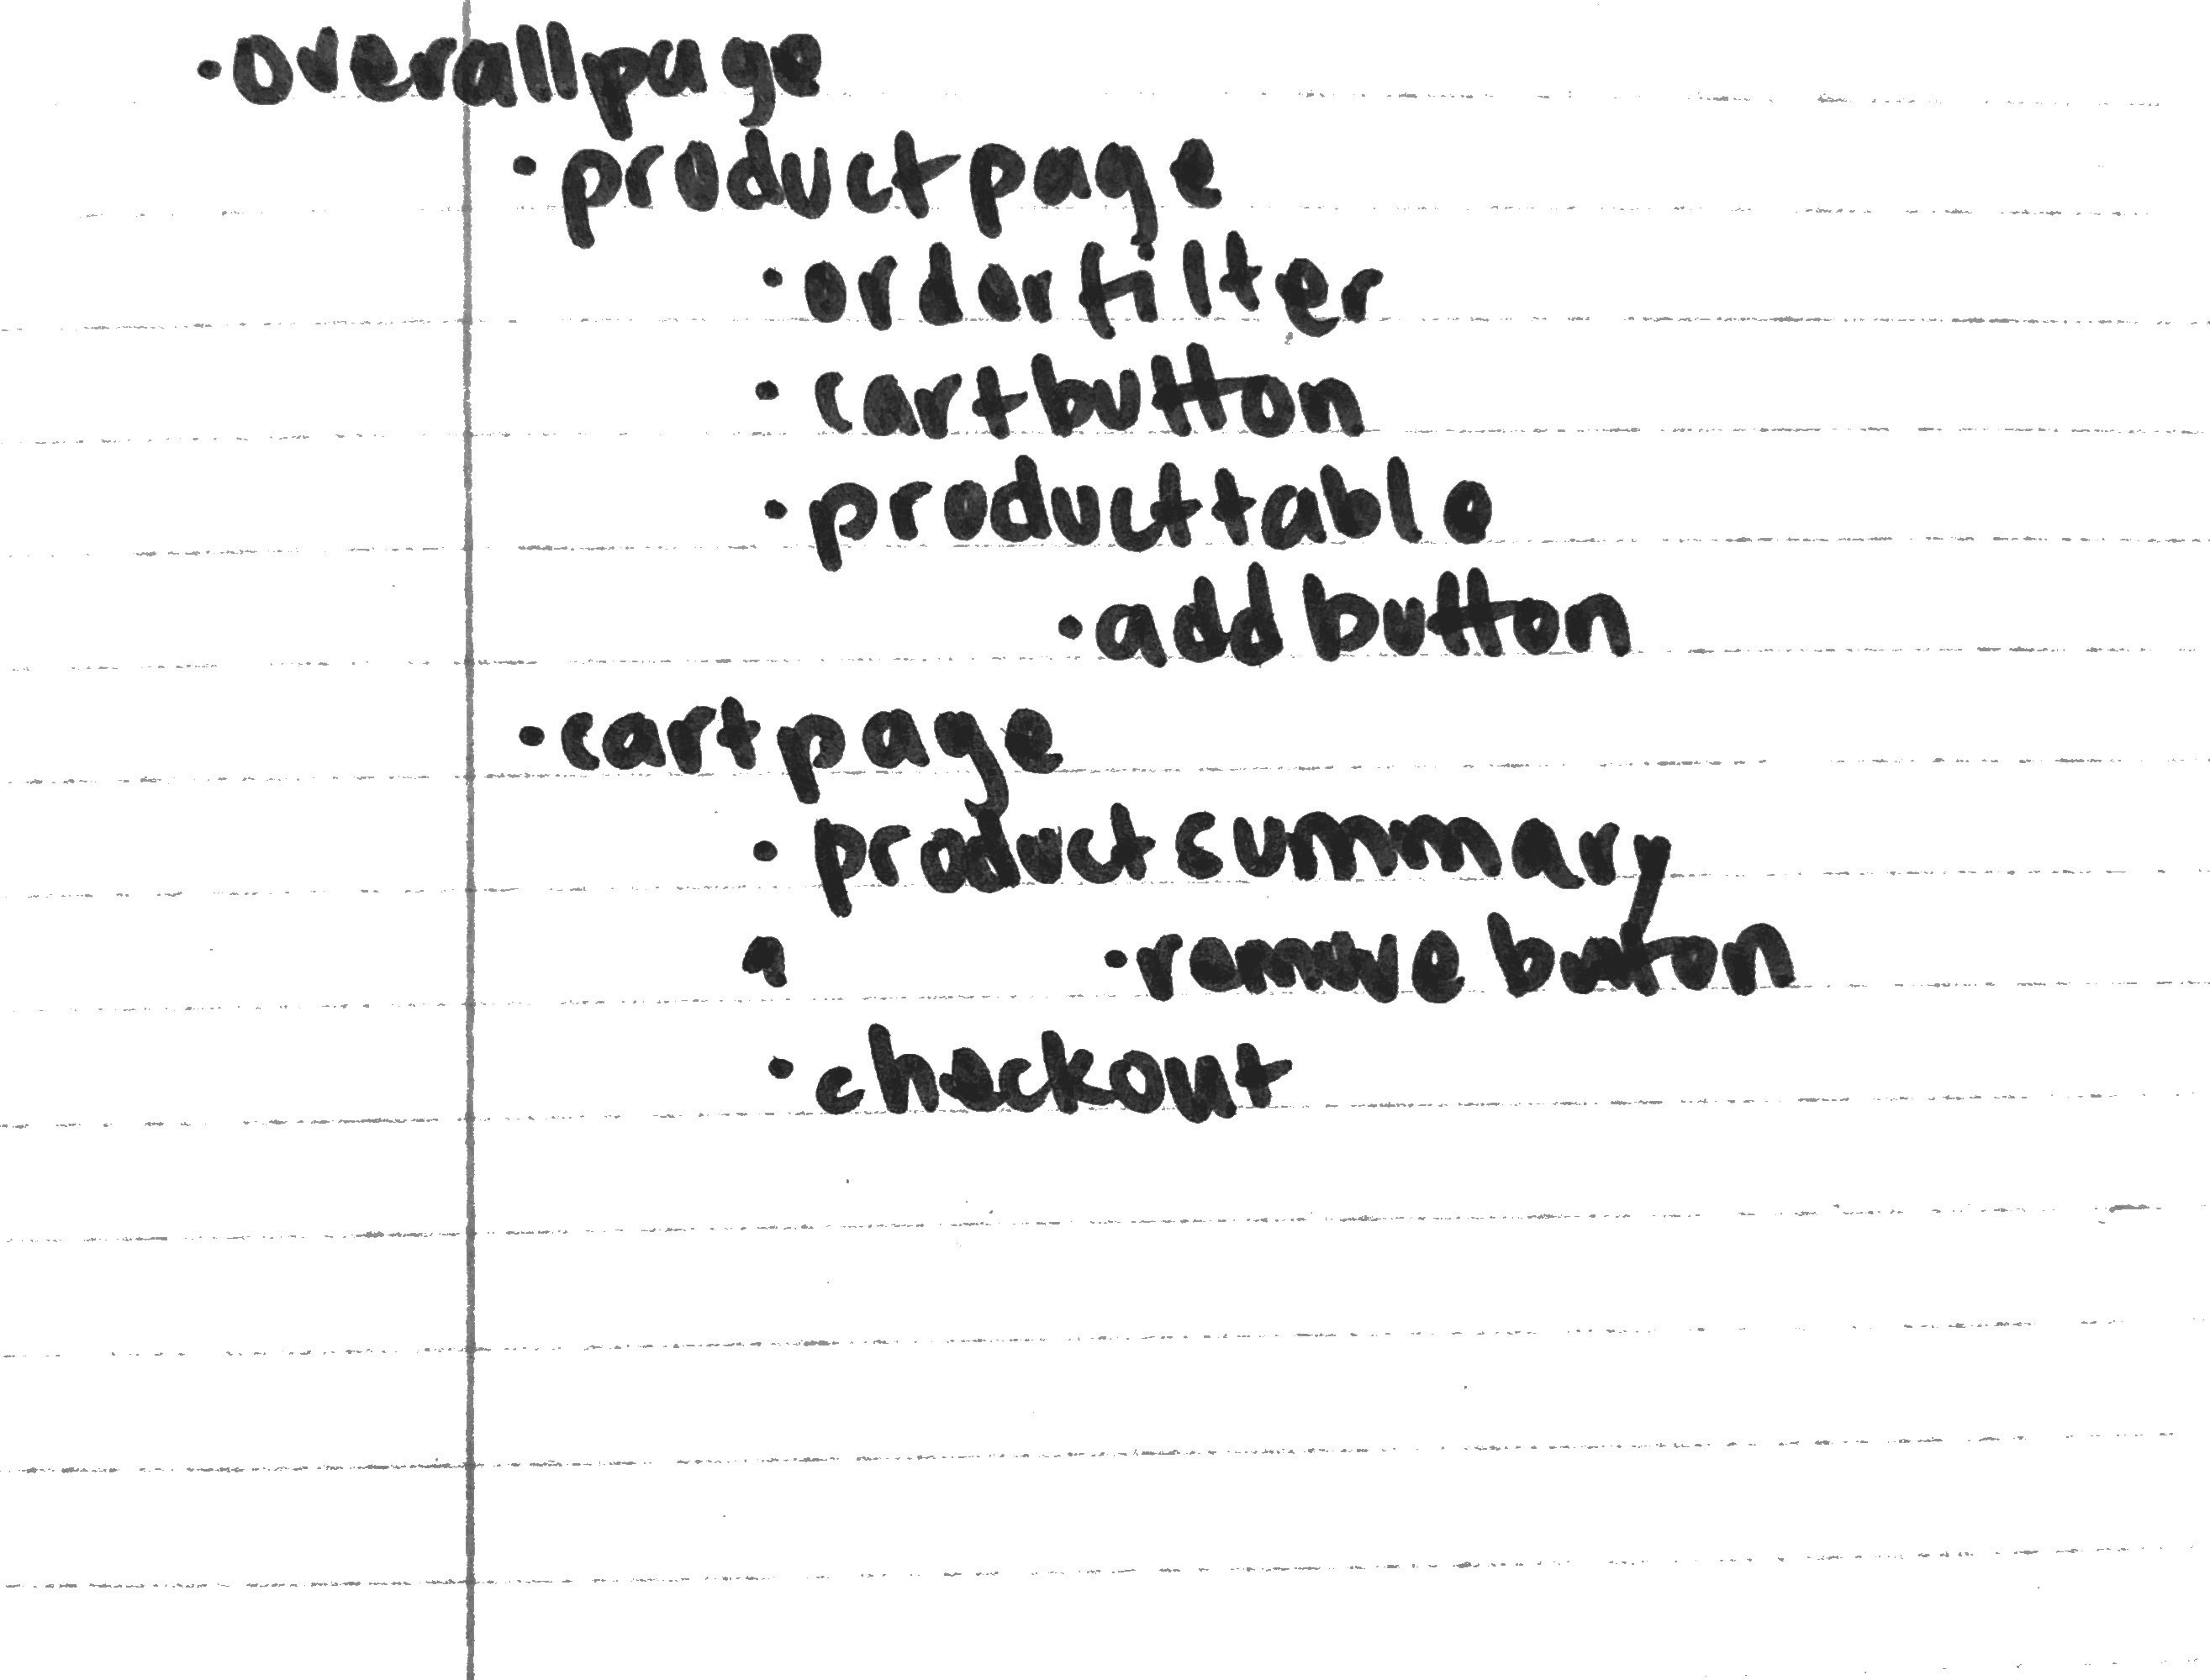 · overallpage
· productpage
· orderfilter
· cartbutton
· producttable
· add button
· cartpage
· productsummary
· remove button
· checkout